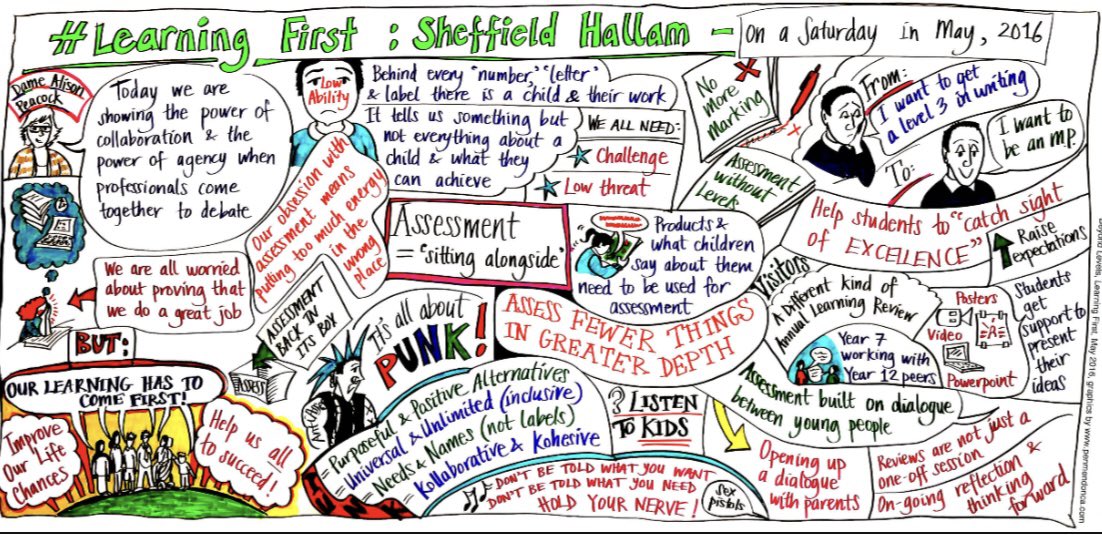 #Learning First : Sheffield Hallam -
on a Saturday in May, 2016
Dame Alison
Peacock
Today we are
showing the power of
collaboration & the
power of agency when
professionals come
together to debate
We are all worried
about proving that
we do a great job
BUT:
OUR LEARNING HAS TO
COME FIRST!
Improve
Our Life
Chances
Help us all
to succeed!
Low
Ability
Our obsession with
assessment means
putting too much energy
in the
wrong
place
ASSESSMENT
BACK IN
ITS BOX
ASSESS
Behind every "number," "letter"
& label there is a child & their work
It tells us something but
not everything about a
child & what they
can achieve
WE ALL NEED:
Challenge
Low threat
Assessment
= "sitting alongside"
Products &
what children
say about them
need to be used for
assessment
ASSESS FEWER THINGS
IN GREATER DEPTH
It's all about
PUNK!
= Purposeful & Positive Alternatives
= Universal & Unlimited (inclusive)
= Needs & Names (not labels)
= Kollaborative & Kohesive
? LISTEN
TO KIDS
DON'T BE TOLD WHAT YOU WANT
DON'T BE TOLD WHAT YOU NEED
HOLD YOUR NERVE!
Sex
pistols
No
more
Marking
Assessment
without
Levels
From:
I want to get
a level 3 in writing
To:
I want to
be an M.P.
Help students to "catch sight
of EXCELLENCE"
Raise
expectations
Visitors
A Different kind of
Annual Learning Review
Year 7
working with
Year 12 peers
Posters
Video
Powerpoint
Students
get
support to
present
their
ideas
Assessment built on dialogue
between young people
Opening up
a dialogue
with parents
Reviews are not just a
one-off session
On-going reflection &
thinking
forward
Beyond Levels, Learning First, May 2016, graphics by www.penmendonca.com